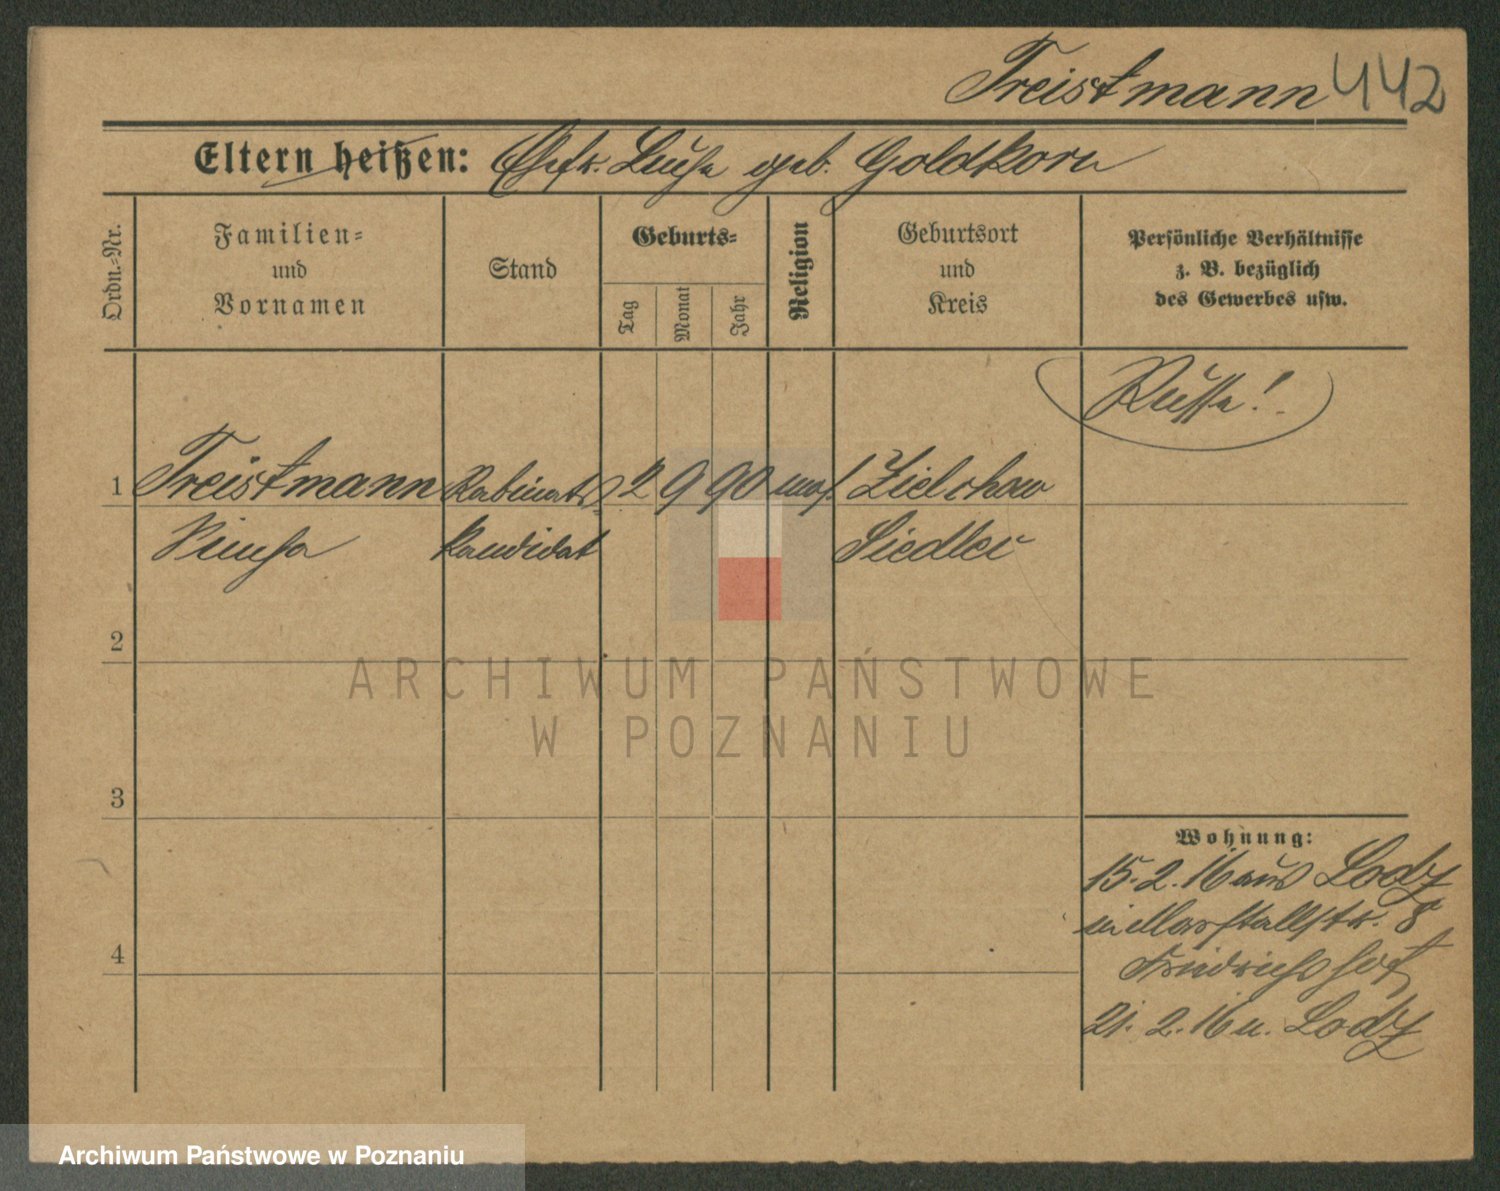 Treistmann 442
Eltern heißen: Ehefr. Luise geb. Goldkorn
Ordn.-Nr.
Familien-
und
Vornamen
Stand
Geburts-
Tag
Monat
Jahr
Religion
Geburtsort
und
Kreis
Persönliche Verhältnisse
z. B. bezüglich
des Gewerbes usw.
Russe!
1 Treistmann Rabinats- 2 9 90 mos. Zielchow
kandidat Siedlec
2
3
4
Wohnung:
15.2.16 aus Lodz
in Marstallstr. 8
Friedrichshof
21.2.16 n. Lodz
ARCHIWUM PAŃSTWOWE
W POZNANIU
Archiwum Państwowe w Poznaniu